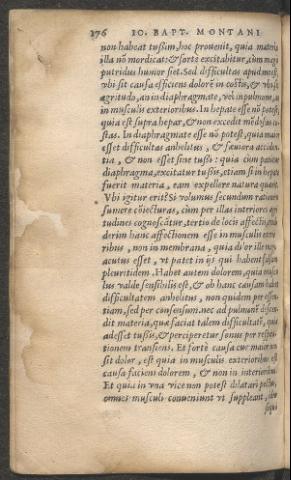 176 IO. BAPT. MONTANI
non habeat tussim, hoc prouenit, quia materia
illa nō mordicat: & fortè excitabitur, cùm magis
putridus humor fiet. Sed difficultas apud me est,
vbi sit causa efficiens dolorē in costis, & vbi sit
ægritudo, an in diaphragmate, vel in pulmone, an
in musculis exterioribus. In hepate esse nō potest,
quia est supra hepar, & non excedit mēdosas co-
stas. In diaphragmate esse nō potest, quia maior
esset difficultas anhelitus, & sæuiora acciden-
tia, & non esset sine tussi: quia cùm patitur
diaphragma, excitatur tussis, etiam si in hepate
fuerit materia, eam expellere natura quærit.
Vbi igitur erit? Si volumus secundum rationem
sumere cōiecturas, cùm per illas interiores ægri-
tudines cognoscātur, tertio de locis affectis,
derim hanc affectionem esse in musculis exte-
rioribus, non in membrana, quia dolor ille magis
acutus esset, vt patet in ijs qui habent falsam
pleuritidem. Habet autem dolorem, quia muscu-
lus valde sensibilis est, & ob hanc causam habet
difficultatem anhelitus, non quidem per essen-
tiam, sed per consensum. nec ad pulmonē descen-
dit materia, quæ faciat talem difficultatē, quia
adesset tussis, & perciperetur sonus per respi-
tionem transiens. Et fortè causa cur maior non
sit dolor, est quia in musculis exterioribus est
causa faciens dolorem, & non in interioribus.
Et quia in vna vice non potest dilatari pectus,
omnes musculi conueniunt vt suppleant,